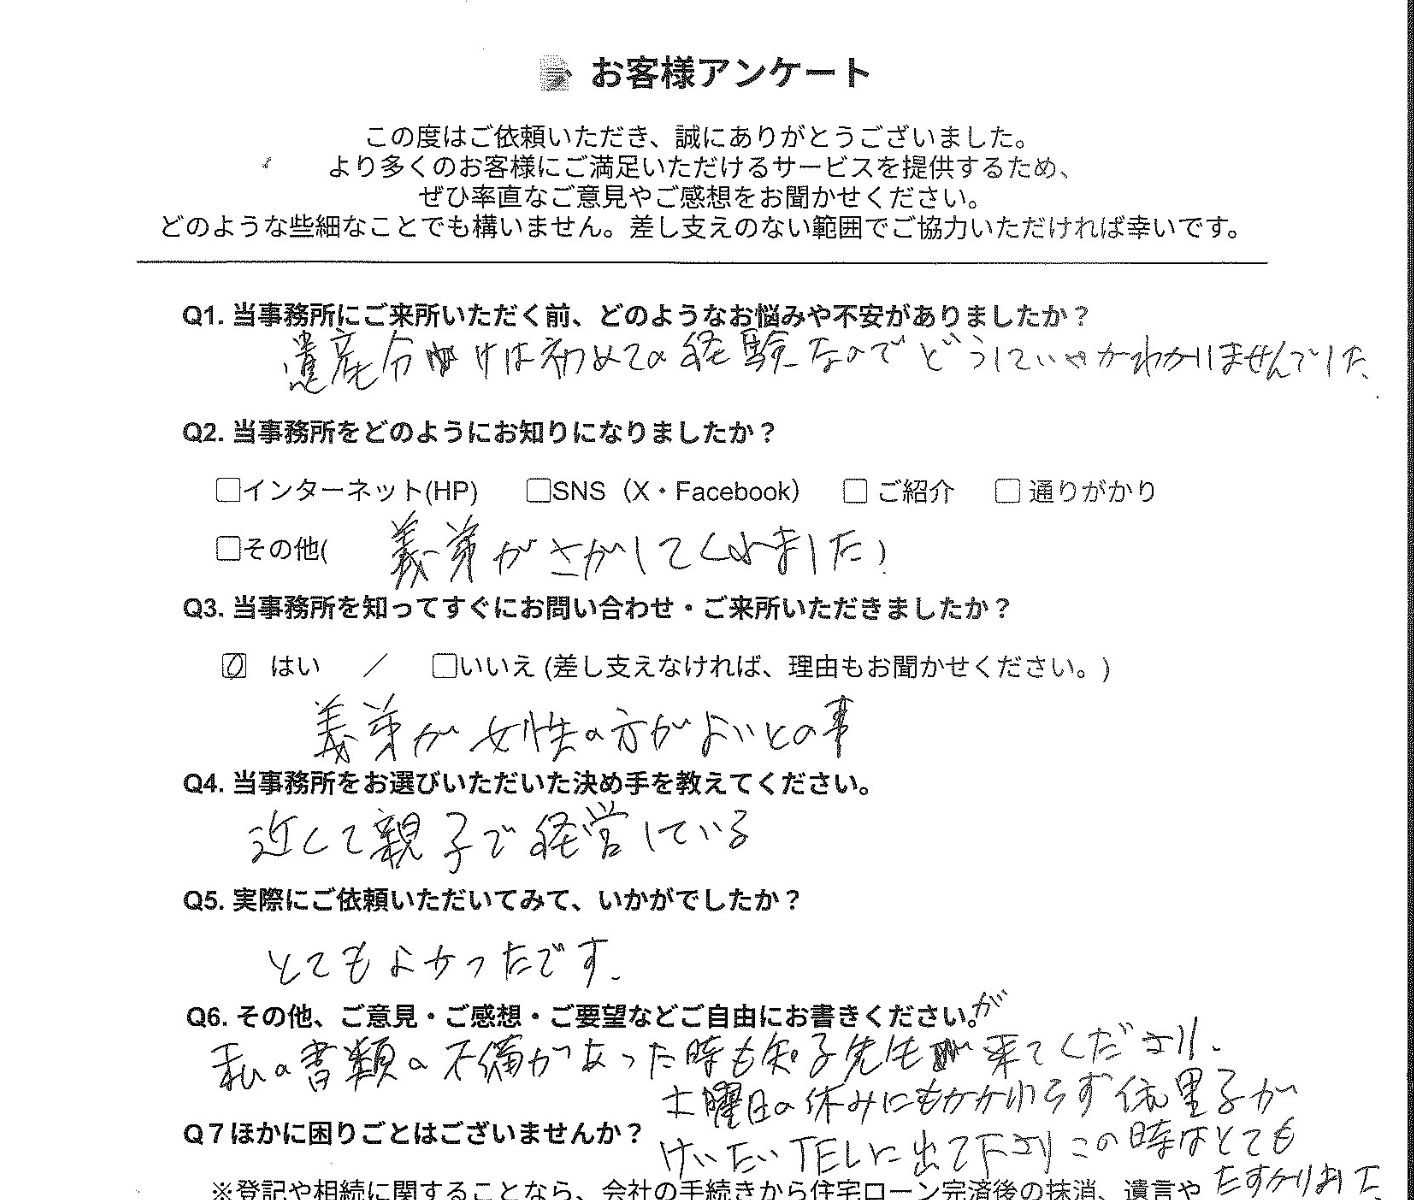 お客様アンケート
この度はご依頼いただき、誠にありがとうございました。
より多くのお客様にご満足いただけるサービスを提供するため、
ぜひ率直なご意見やご感想をお聞かせください。
どのような些細なことでも構いません。差し支えのない範囲でご協力いただければ幸いです。
Q1. 当事務所にご来所いただく前、どのようなお悩みや不安がありましたか?
遺産分けは初めての経験なのでどうしていいかわかりませんでした
Q2. 当事務所をどのようにお知りになりましたか?
□インターネット(HP) □SNS（X・Facebook） □ ご紹介 □ 通りがかり
□その他( 義弟がさがしてくれました)
Q3. 当事務所を知ってすぐにお問い合わせ・ご来所いただきましたか?
☑ はい ／ □いいえ (差し支えなければ、理由もお聞かせください。)
義弟が女性の方がよいとの事
Q4. 当事務所をお選びいただいた決め手を教えてください。
近くて親子で経営している
Q5. 実際にご依頼いただいてみて、いかがでしたか?
とてもよかったです.
Q6. その他、ご意見・ご感想・ご要望などご自由にお書きください。
私の書類の不備があった時も知子先生が来てくださり.
土曜日の休みにもかかわらず依里子が
Q７ほかに困りごとはございませんか?
けいたいTELに出て下さりこの時はとても
たすかりました
※登記や相続に関することなら、会社の手続きから住宅ローン完済後の抹消、遺言や